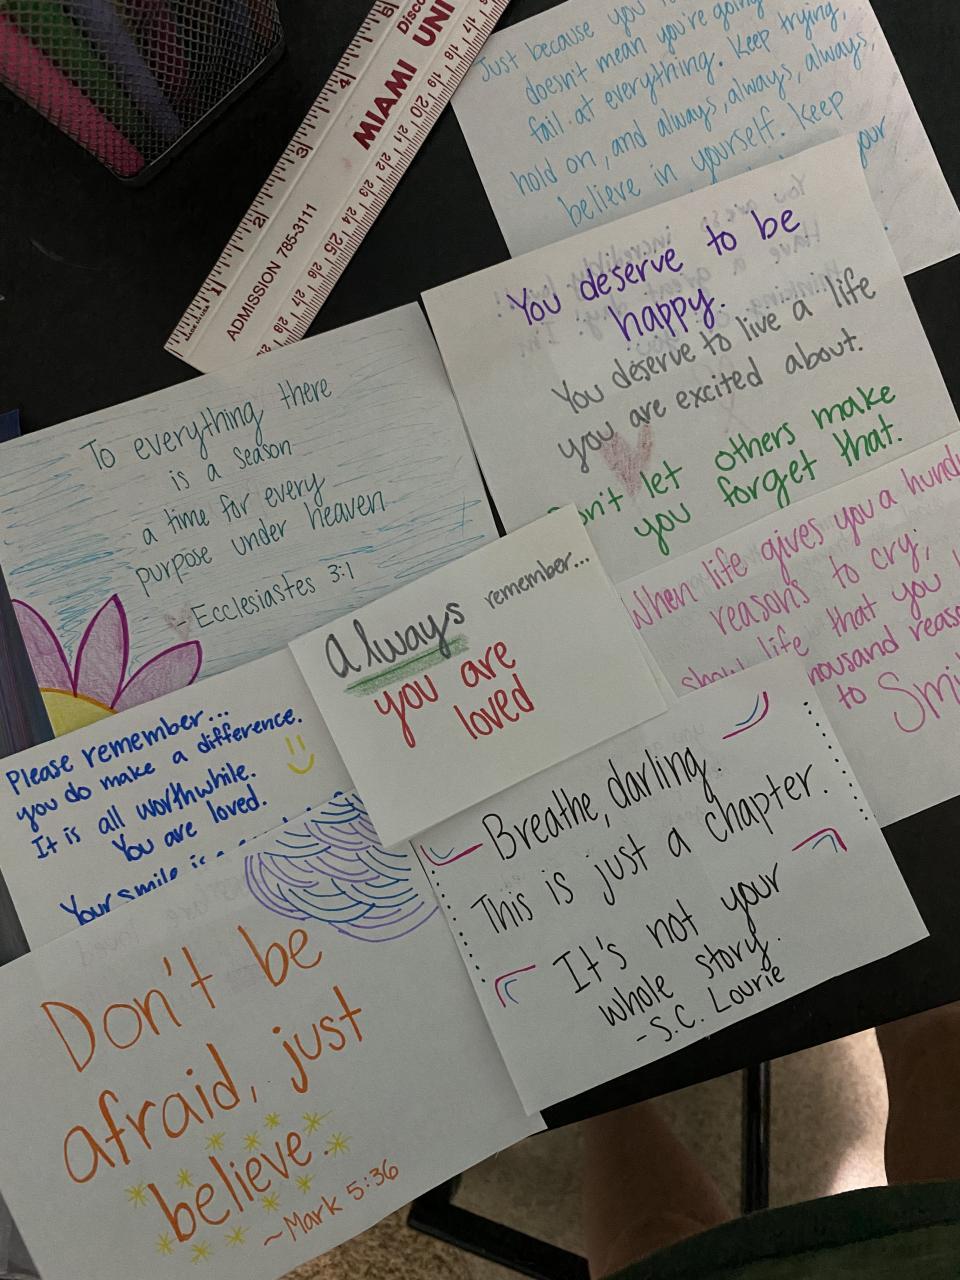 Disco
MIAMI UNI
ADMISSION 785-3111
MADE IN USA
Just because you
doesn't mean you're going
fail at everything. Keep trying,
hold on, and always, always, always,
believe in yourself. Keep
your
You deserve to be
happy.
You deserve to live a life
you are excited about.
Don't let others make
you forget that.
To everything there
is a season
a time for every
purpose under heaven
- Ecclesiastes 3:1
When life gives you a hund
reasons to cry,
show life that you
thousand reaso
to Smi
Always remember...
you are
loved
Please remember...
you do make a difference.
It is all worthwhile.
You are loved.
Your smile is
Breathe, darling.
This is just a chapter.
It's not your
whole story.
- S.C. Lourie
Don't be
afraid, just
believe.
~Mark 5:36